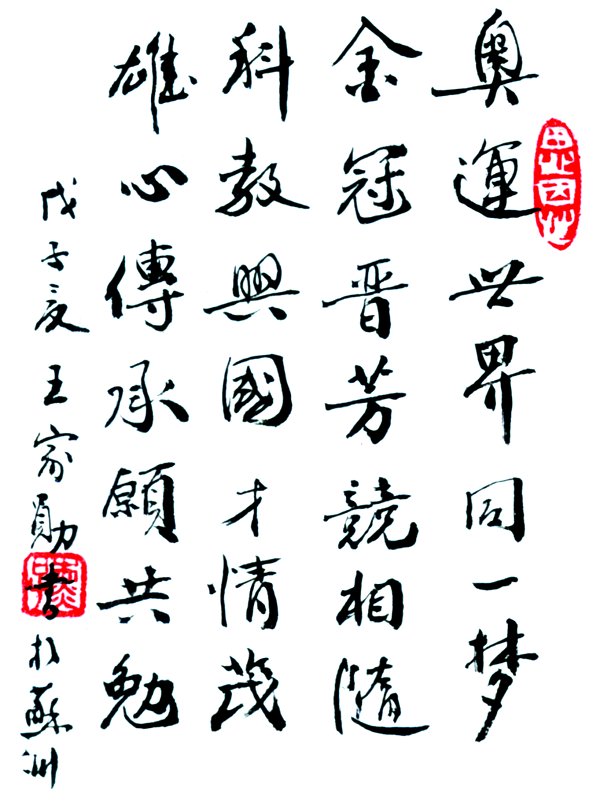 奥運世界同一梦
金冠晋芳競相隨
科教興國才情茂
雄心傳承願共勉
戊子夏王家勛書於蘇州